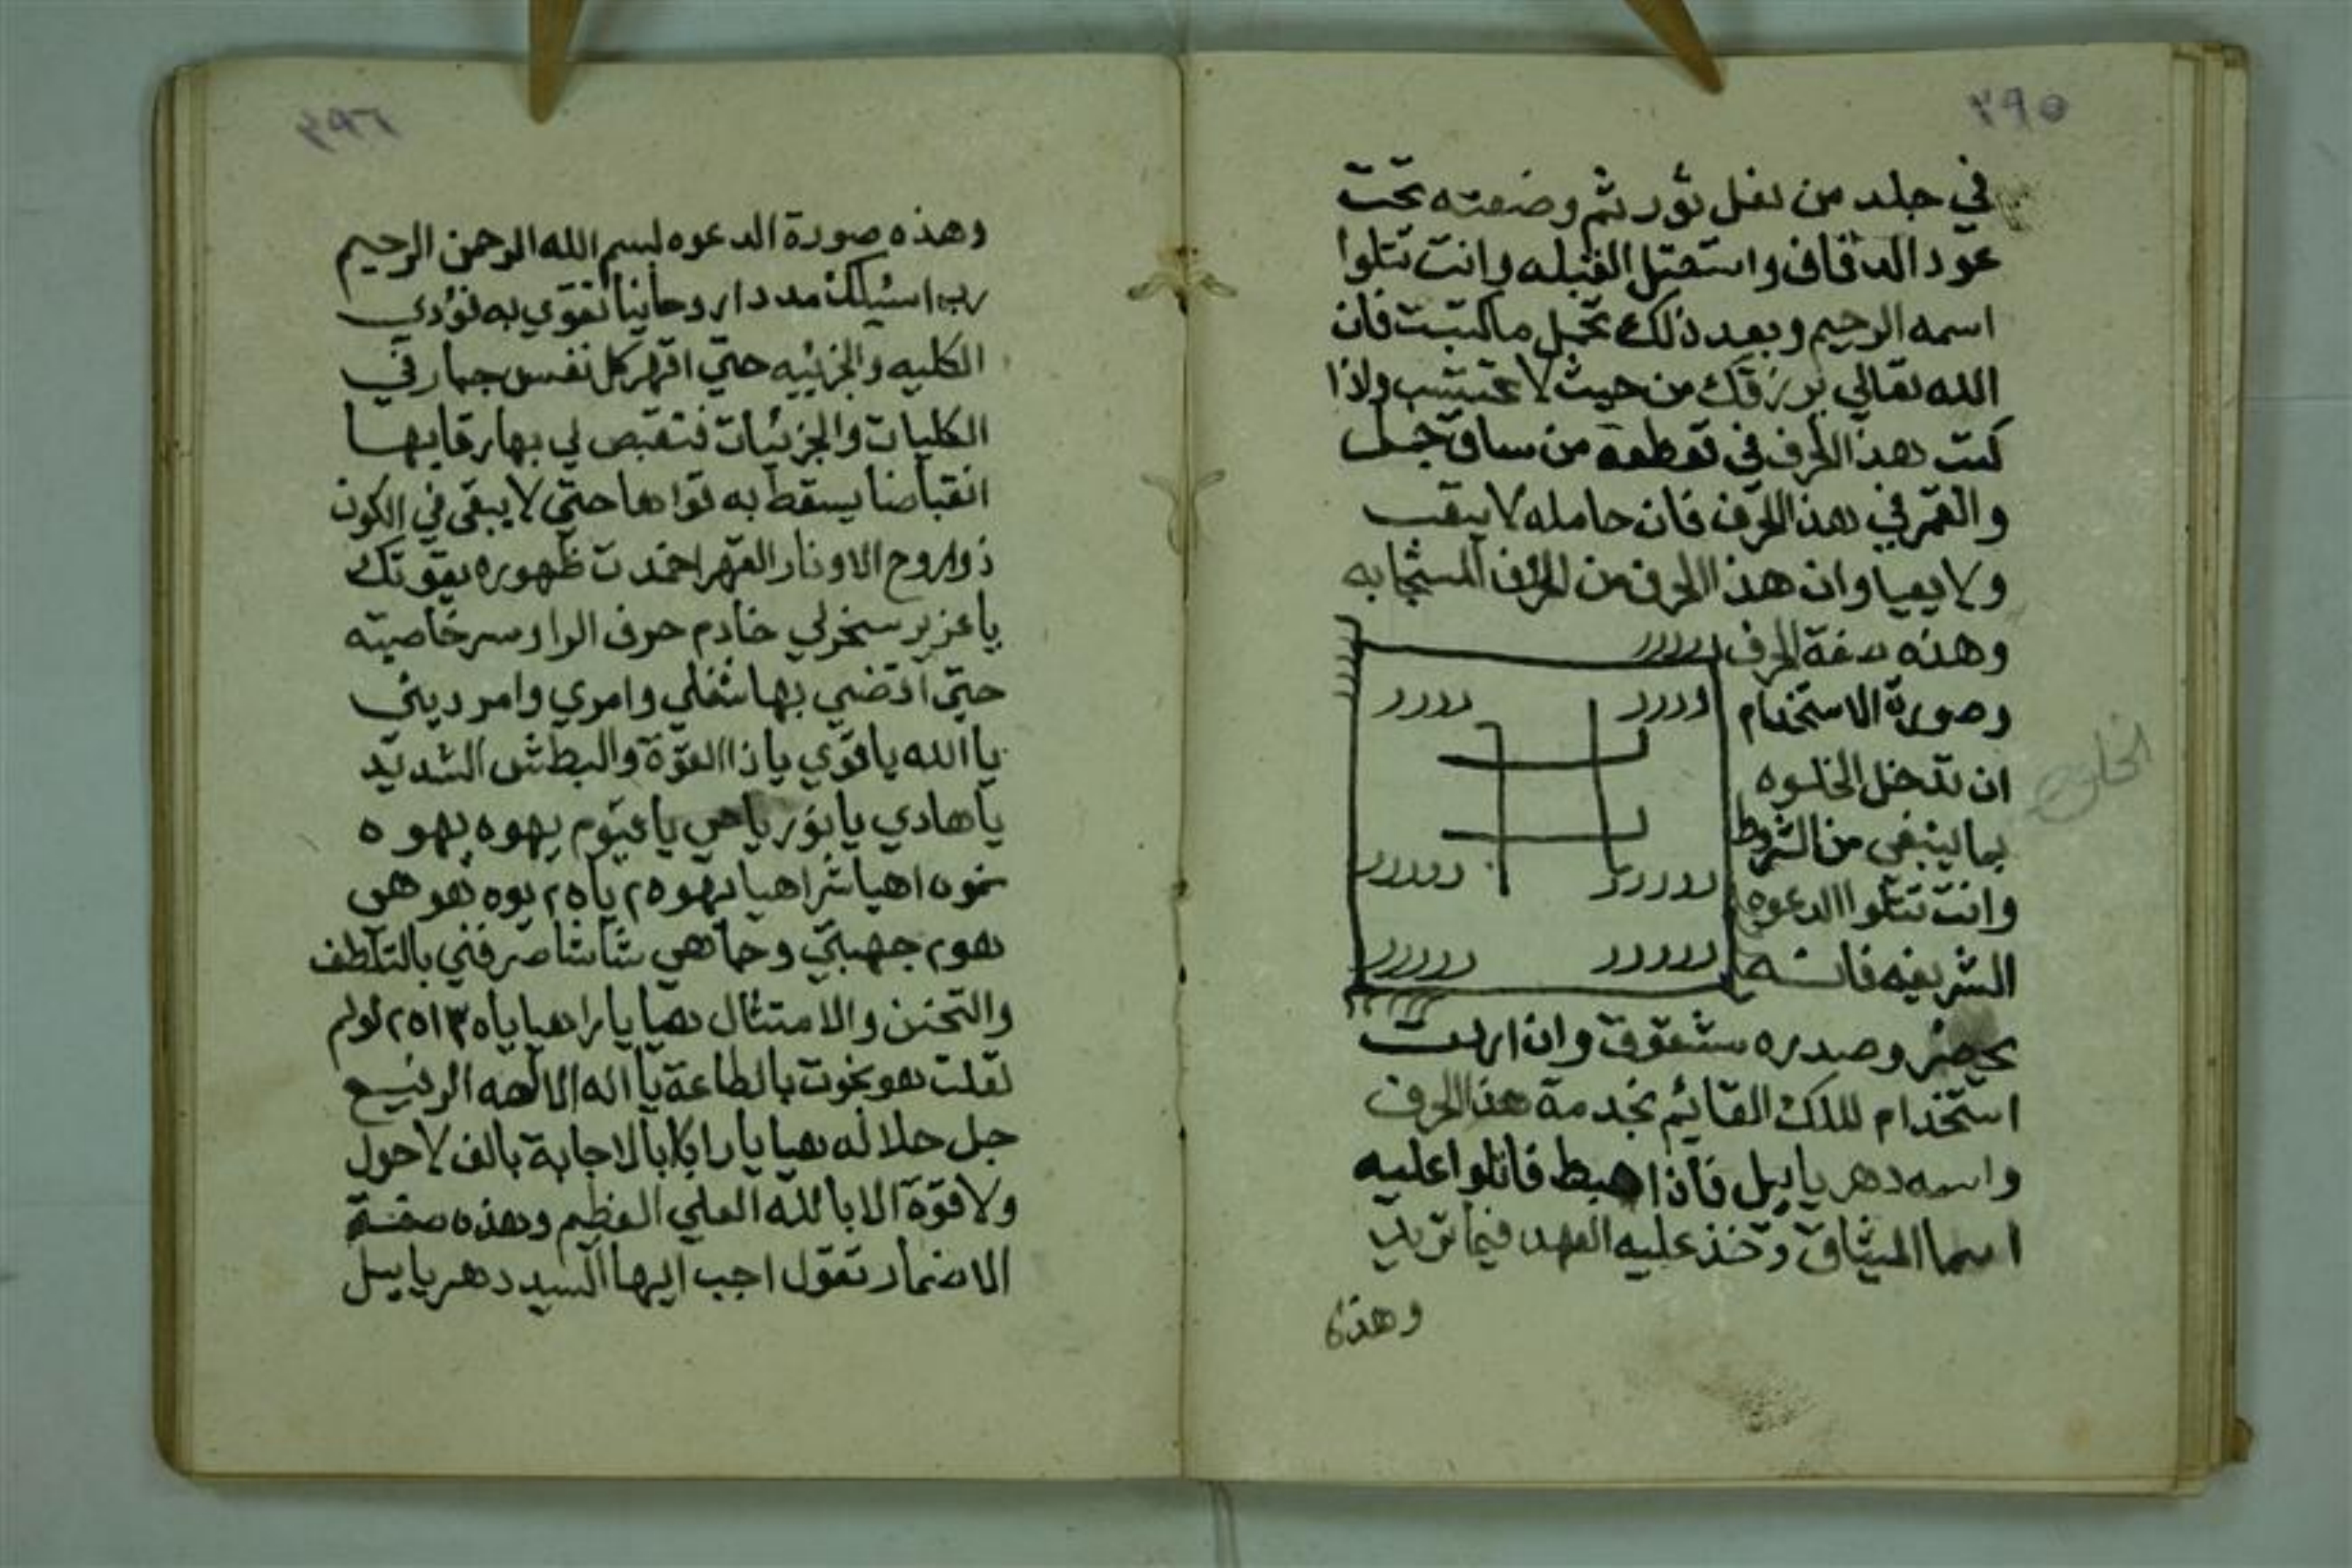 ٣٩٥
في جلد من نعل ثور ثم وضعته تحت
عود الدقاق واستقبل القبله وانت تتلوا
اسمه الرحيم وبعد ذلك تحمل ماكتبت فان
الله تعالي يرزقك من حيث لا تحتسب واذا
كتبت هذا الحرف في قطعة من ساق جمل
والقمر في هذا الحرف فان حامله لا يتعب
ولا يعيا وان هذا الحرف من الحرف المستجابه
وهذه صفة الحرف ررررر
رررر رررر
وصورة الاستخدام
ان تدخل الخلوه
الخلوه
بما ينبغي من الشروط
وانت تتلوا الدعوه
ررررر ررررر
الشريفه فانه
ررررر ررررر
يحضر وصدره مشقوق وان اردت
استخدام الملك القائيم بخدمة هذا الحرف
واسمه دهرياييل فاذا هبط فاتلوا عليه
اسما الميثاق وخذ عليه العهد فيما تريد
وهذه
٣٩٦
وهذه صورة الدعوه بسم الله الرحمن الرحيم
رب اسئيلك مددا روحانيا تقوي به قؤدي
الكليه والجزئيه حتي اقهر كل نفس جبار في
الكليات والجزئيات فتقبض لي بها رقابها
انقباضا يسقط به قواها حتي لا يبقي في الكون
ذوا روح الا ونار القهر اخمدت ظهوره بقوتك
يا عزيز سخرلي خادم حرف الرا وسر خاصيته
حتي اقضي بها شغلي وامري وامر ديني
يا الله يا قوي يا ذا القوة والبطش الشديد
يا هادي يا نور يا حي يا قيوم يهوه يهوه
نموه اهيا شراهيا يهوه ٢ ياه ٢ يوه نهو هي
هو ٢ جهبتي وحاهي شاشا صرفني بالتلطف
والتحنن والامتثال هيا يا را هيا ياه ٣ ا ٢٥ لولم
لقلت هو يخوت بالطاعة يا اله الالهه الرفيع
جل جلاله هيا يا را بالاجابة بالف لا حول
ولا قوة الا بالله العلي العظيم وهذه صفة
الاضمار تقول اجب ايها السيد دهرياييل